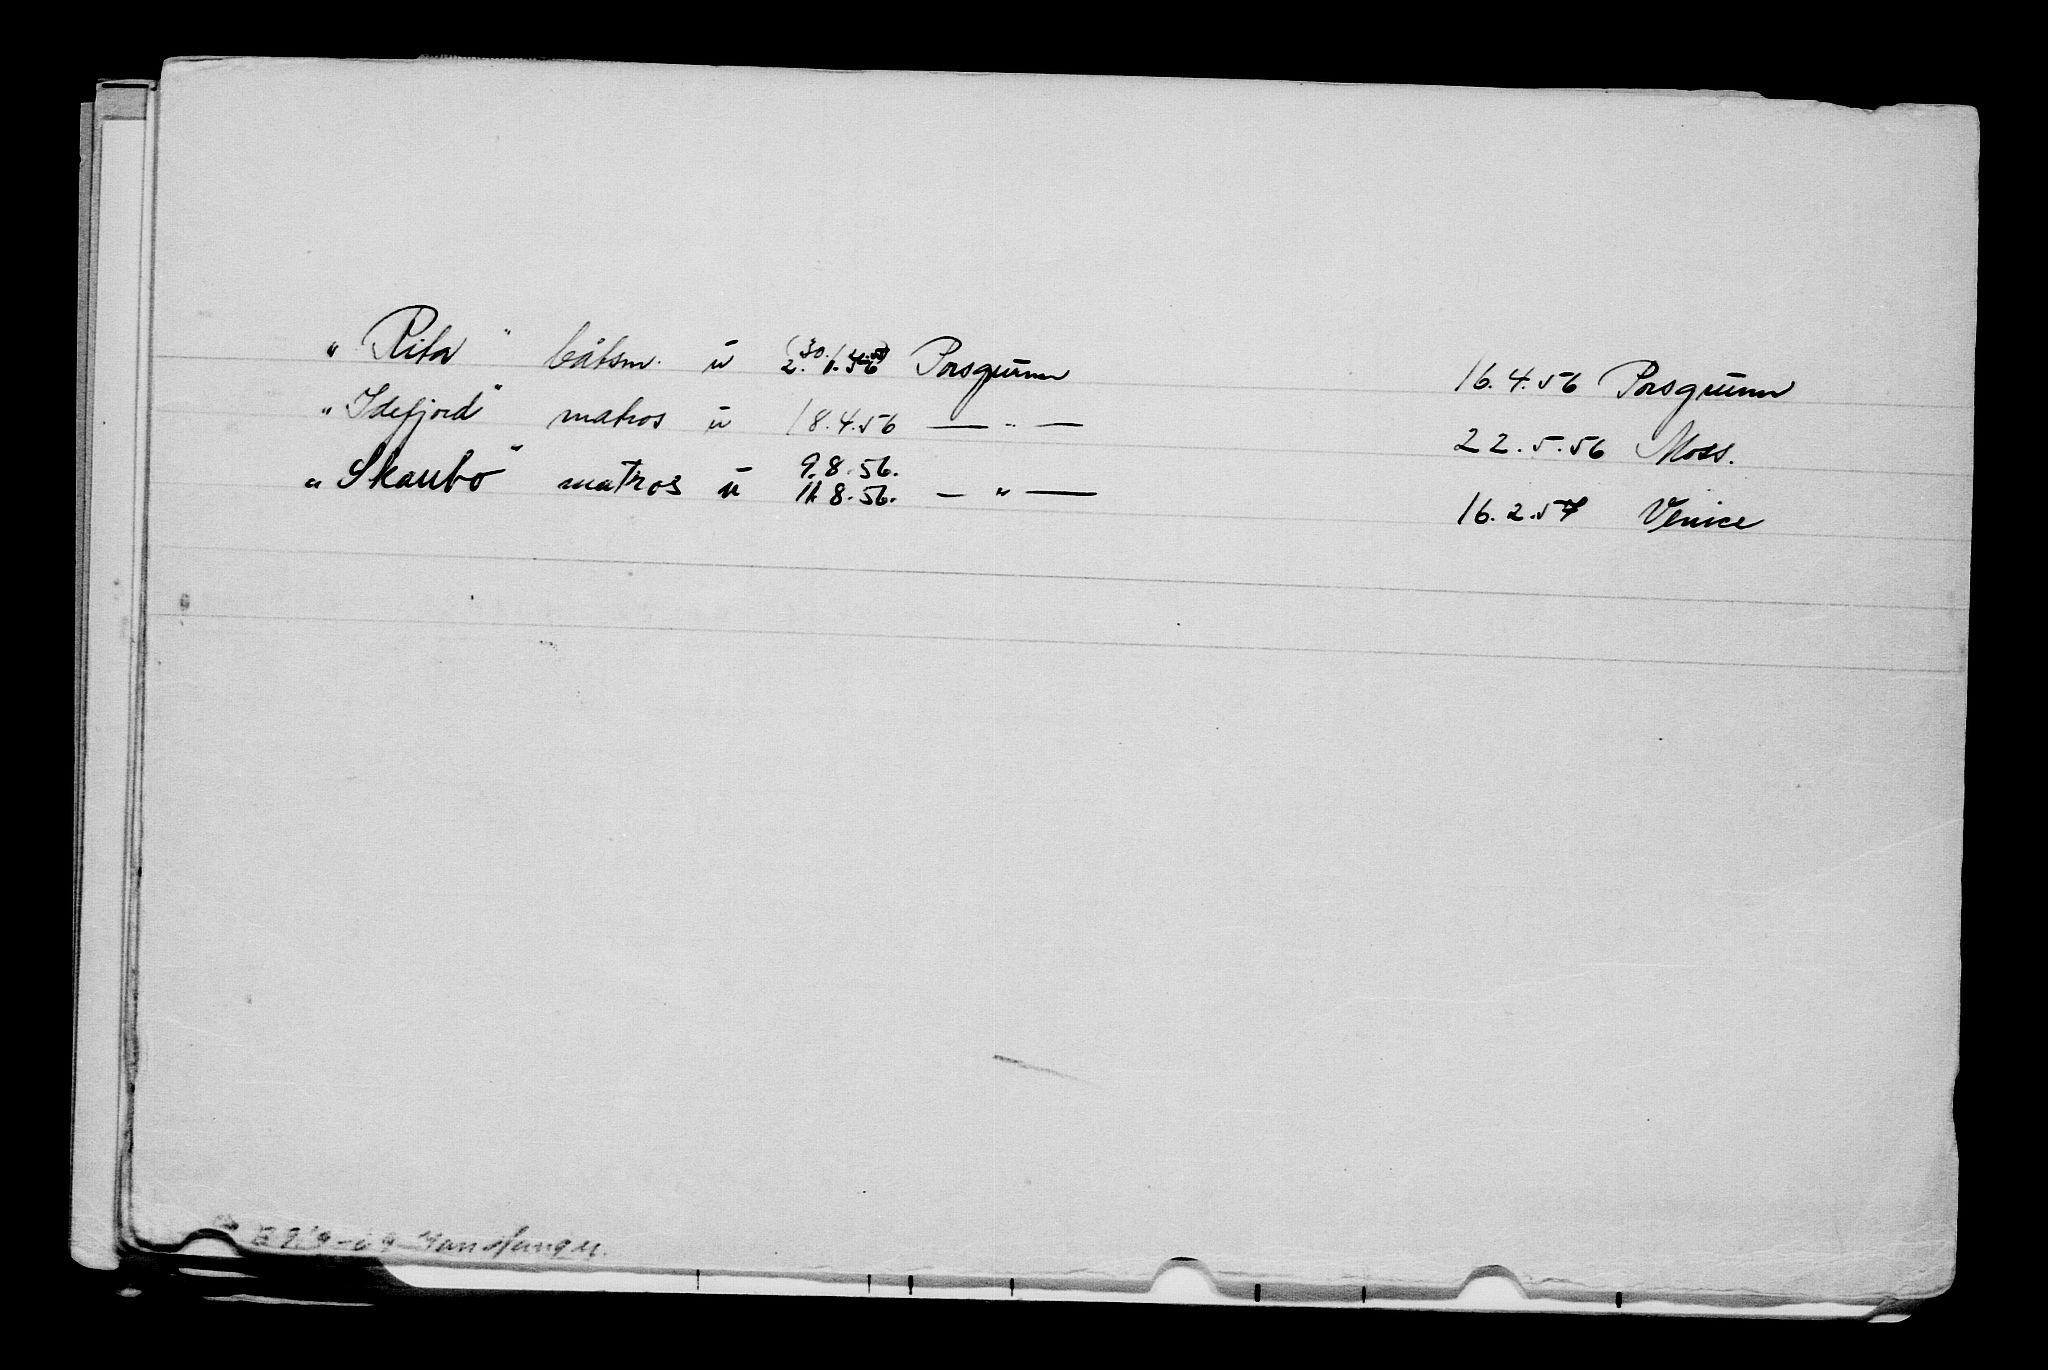 "Rita" båtsm. u (30./12.55) 2.1.56 Porsgrunn 16.4.56 Porsgrunn
"Idefjord" matros u 18.4.56 — " — 22.5.56 Moss.
"Skaubo" matros u 9.8.56. 11.8.56. — " — 16.2.57 Venice